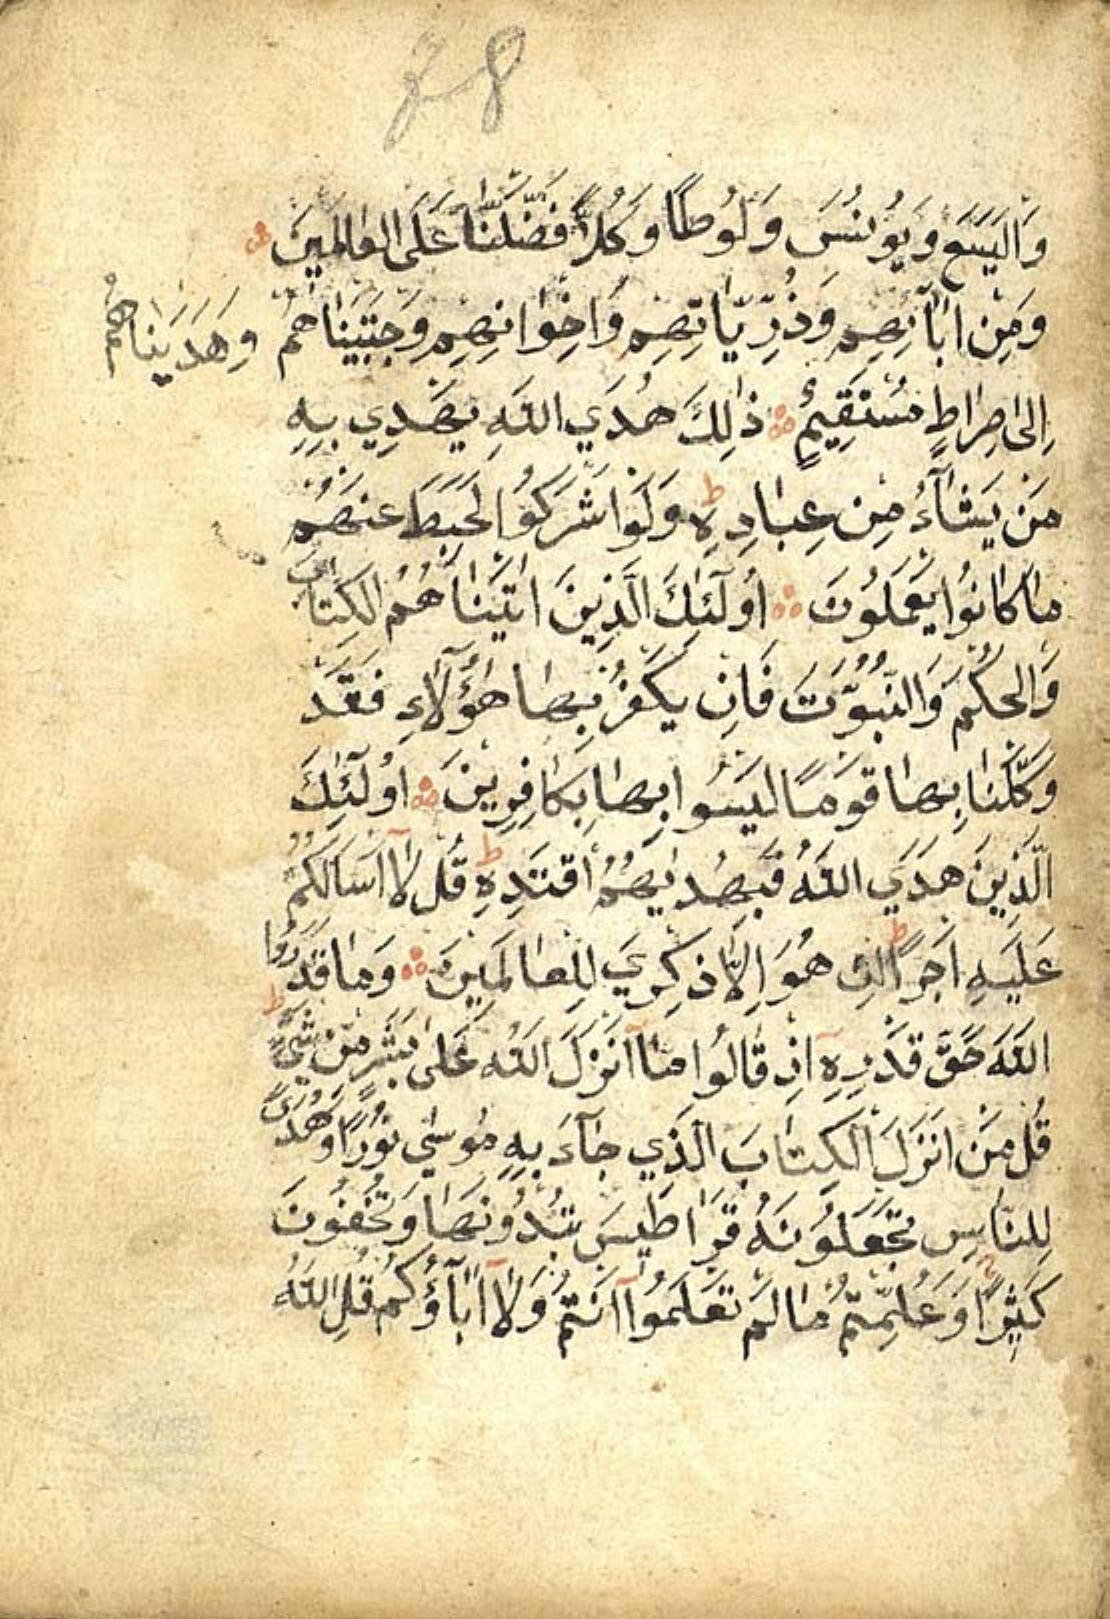 28
وَالْيَسَعَ وَيُونُسَ وَلُوطًا وَكُلًّا فَضَّلْنَا عَلَى الْعَالَمِينَ
وَمِنْ اٰبَآئِهِمْ وَذُرِّيَّاتِهِمْ وَاِخْوَانِهِمْ وَجْتَبَيْنَاهُمْ وَهَدَيْنَاهُمْ
اِلٰى صِرَاطٍ مُسْتَقِيمٍ ذٰلِكَ هُدَي اللّٰهِ يَهْدِي بِهِ
مَنْ يَشَآءُ مِنْ عِبَادِهِ ط وَلَوْ اَشْرَكُوا لَحَبِطَ عَنْهُمْ
مَا كَانُوا يَعْمَلُونَ اُولٰٓئِكَ الَّذِينَ اٰتَيْنَاهُمُ الْكِتَابَ
وَالْحُكْمَ وَالنُّبُوَّتَ فَاِنْ يَكْفُرْ بِهَا هٰٓؤُلَآءِ فَقَدْ
وَكَّلْنَا بِهَا قَوْمًا لَيْسُوا بِهَا بِكَافِرِينَ اُولٰٓئِكَ
الَّذِينَ هَدَي اللّٰهُ فَبِهُدٰيهُمُ اقْتَدِهِ ط قُلْ لَٓا اَسْاَلُكُمْ
عَلَيْهِ اَجْرًا ط اِنْ هُوَ اِلَّا ذِكْرٰي لِلْعَالَمِينَ وَمَا قَدَرُوا
اللّٰهَ حَقَّ قَدْرِهِٓ اِذْ قَالُوا مَٓا اَنْزَلَ اللّٰهُ عَلٰى بَشَرٍ مِنْ شَيْءٍ ط
قُلْ مَنْ اَنْزَلَ الْكِتَابَ الَّذِي جَآءَ بِهِ مُوسٰي نُورًا وَهُدًى
لِلنَّاسِ تَجْعَلُونَهُ قَرَاطِيسَ تُبْدُونَهَا وَتُخْفُونَ
كَثِيرًا وَعُلِّمْتُمْ مَا لَمْ تَعْلَمُوا اَنْتُمْ وَلَٓا اٰبَآؤُكُمْ قُلِ اللّٰهُ